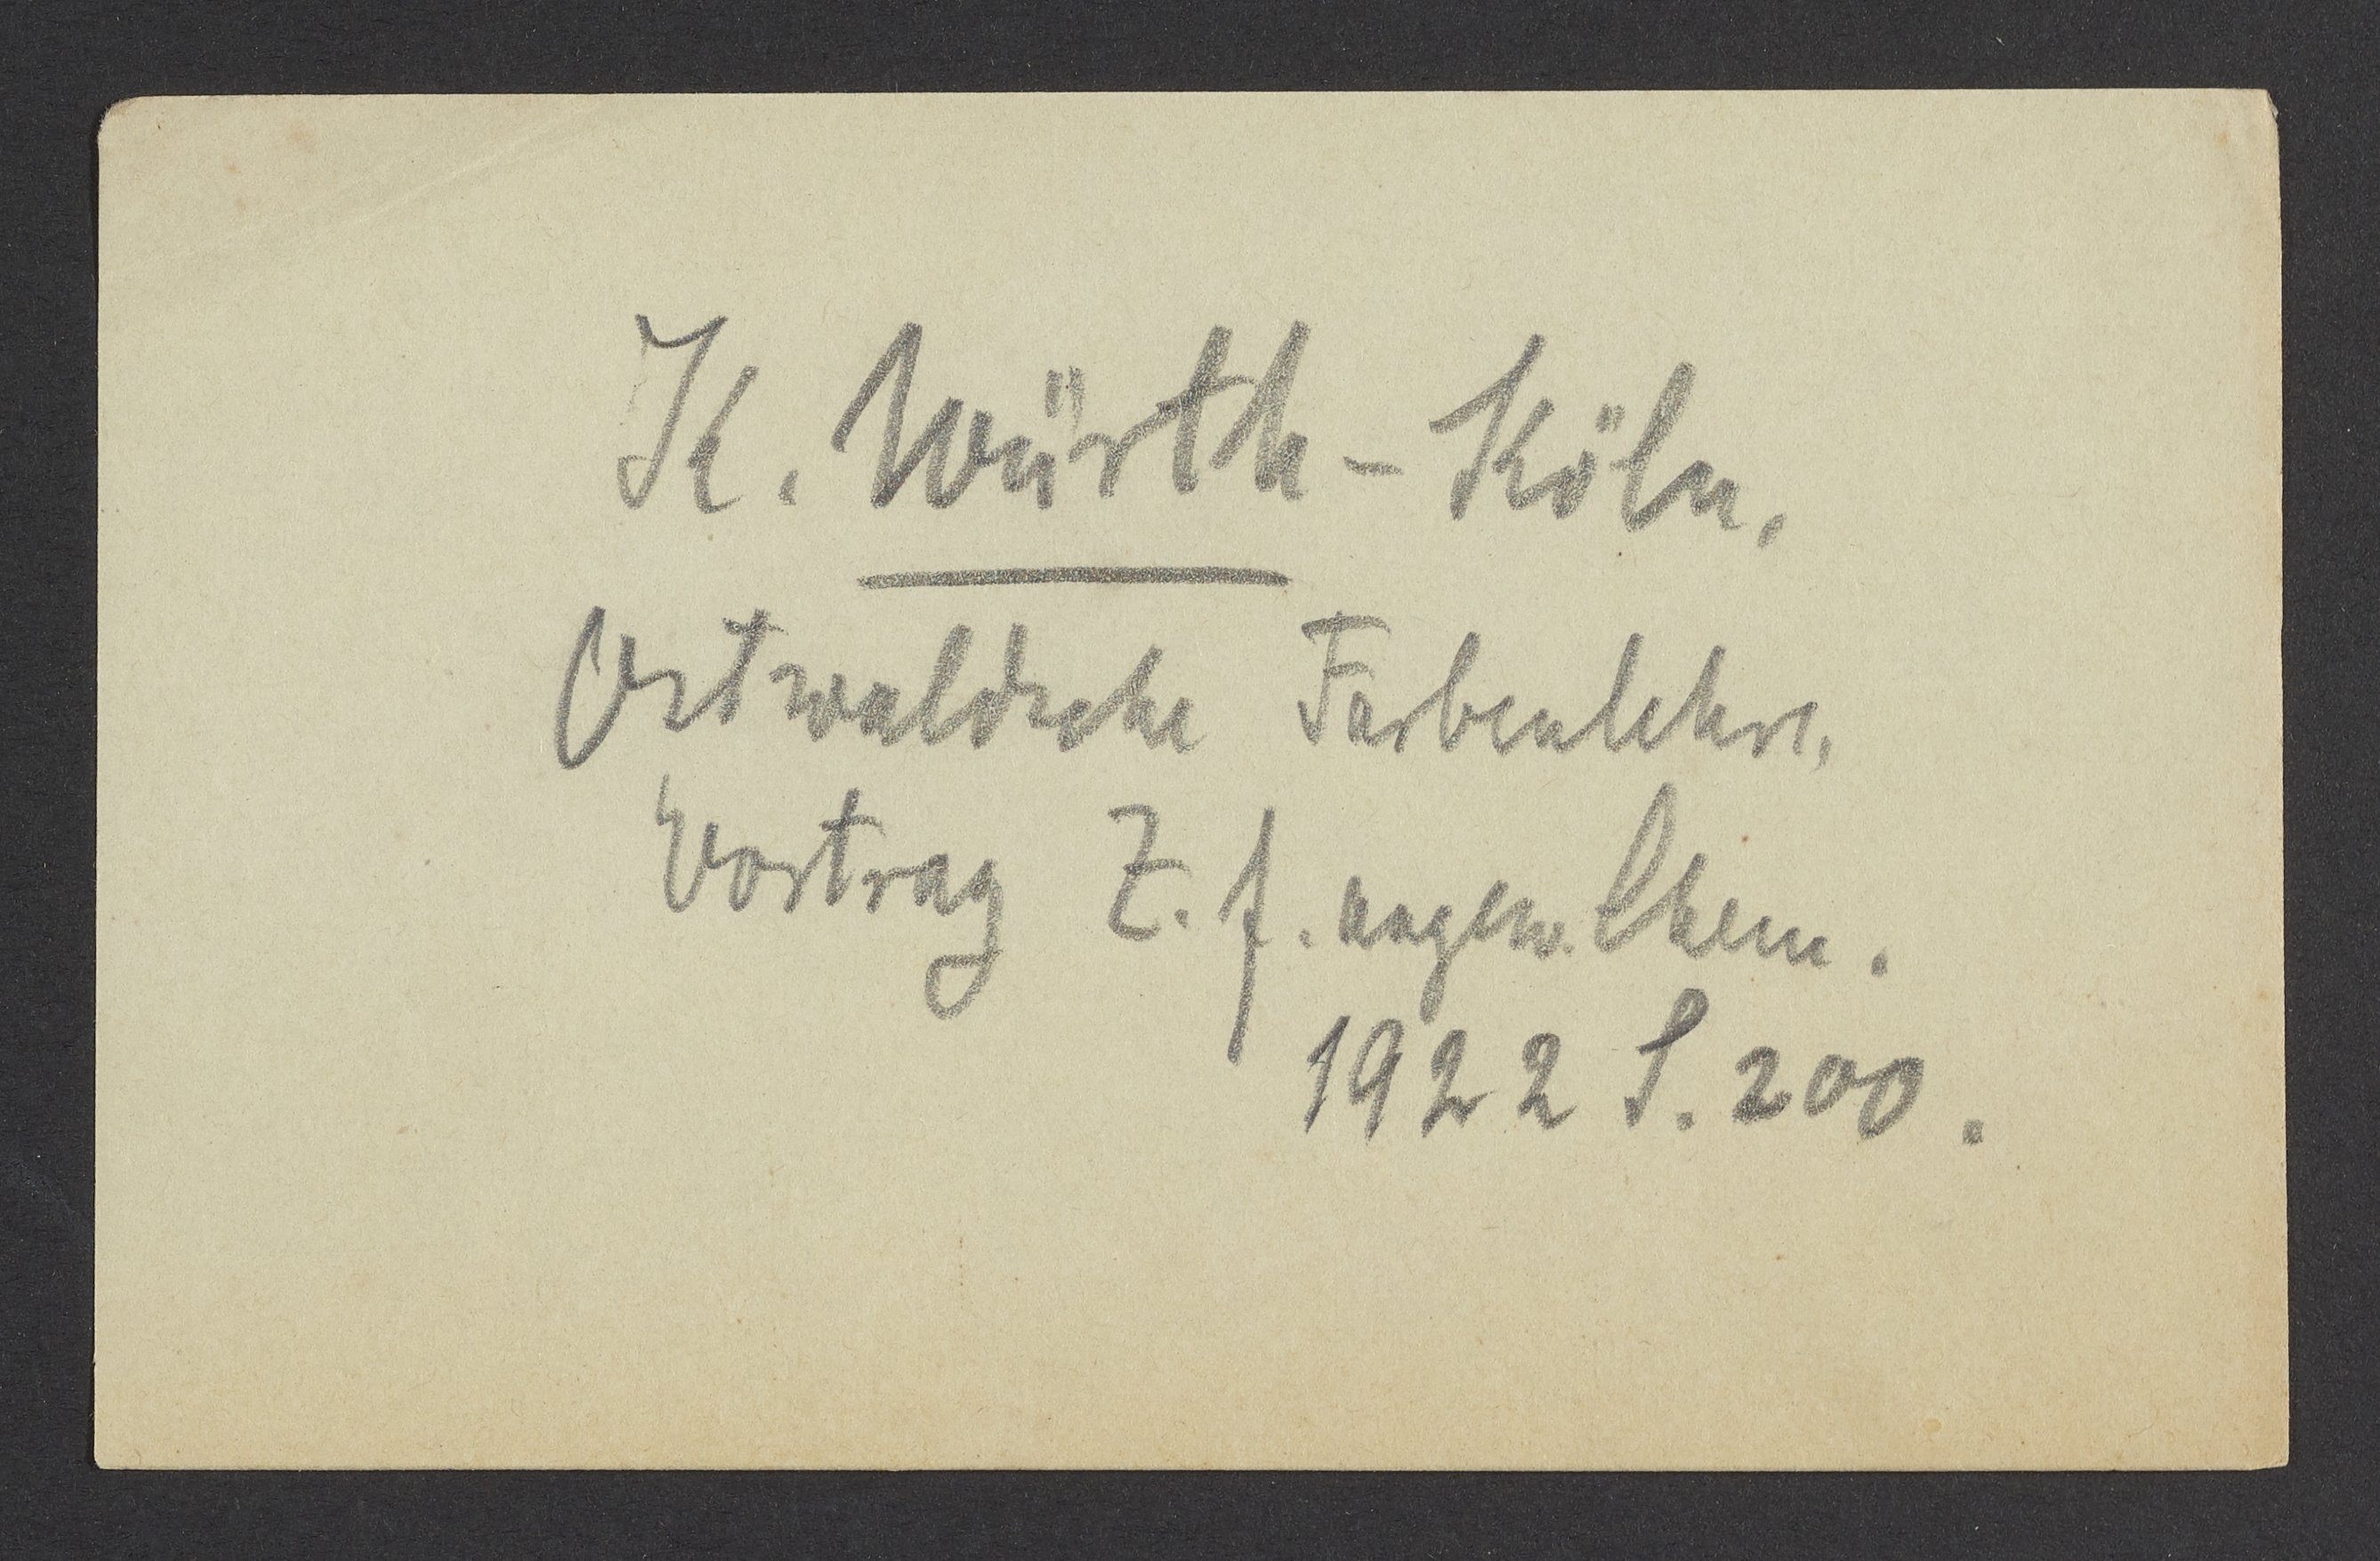 K. Würth - Köln.
Ostwaldsche Farbenlehre,
Vortrag Z. f. angew. Chem.
1922 S. 200.